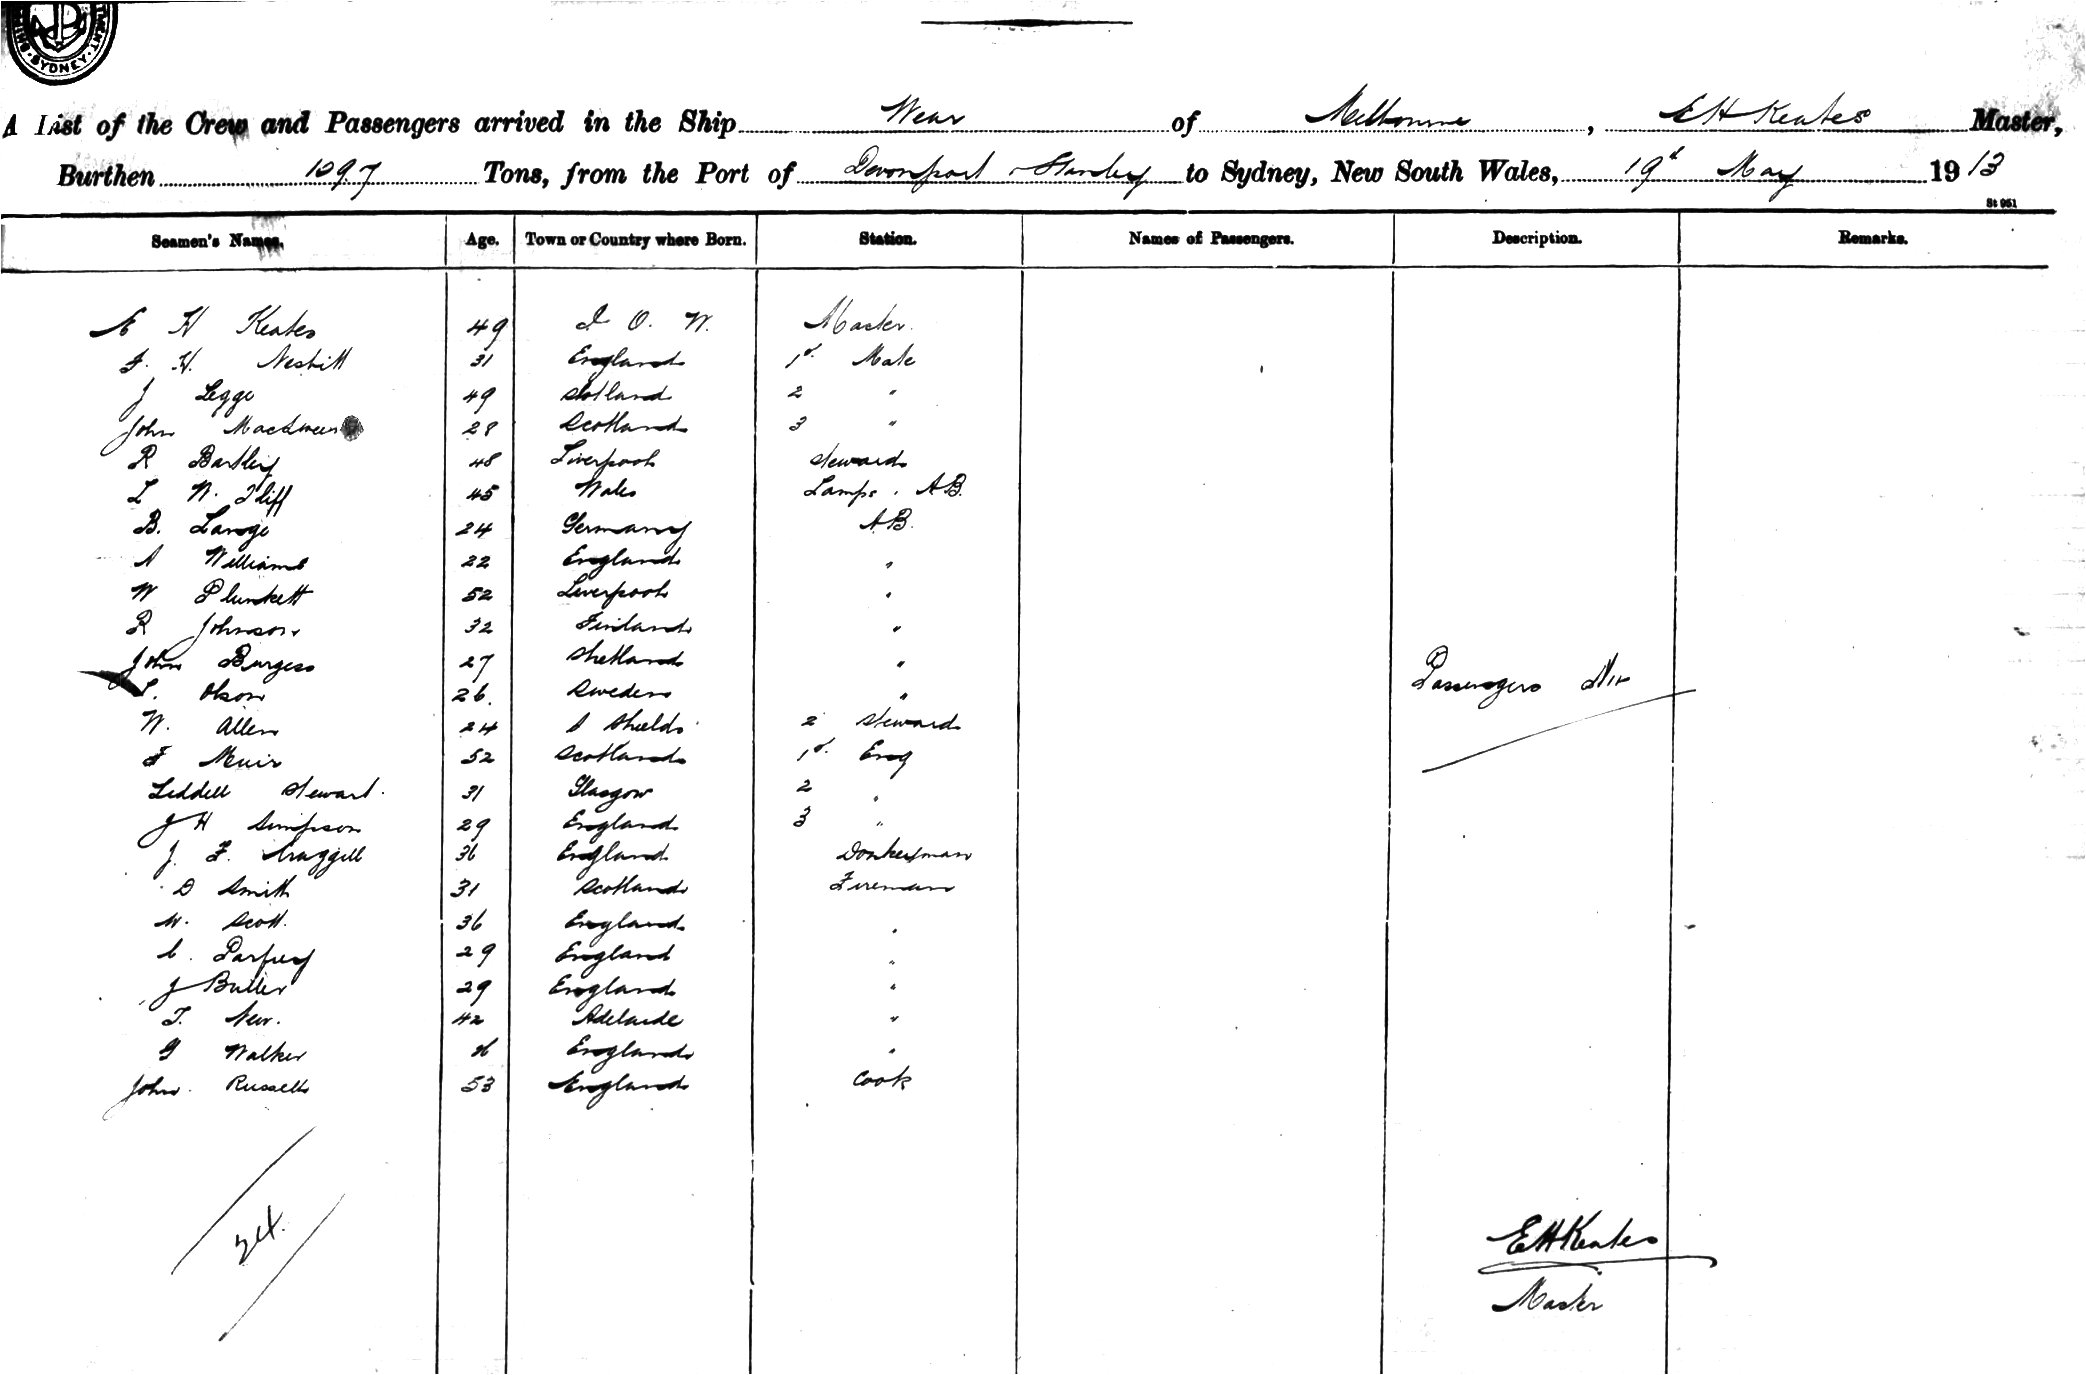 SYDNEY
A List of the Crew and Passengers arrived in the Ship Wear of Melbourne, E H Keates Master,
Burthen 1097 Tons, from the Port of Devonport Stanley to Sydney, New South Wales, 19th May 1913
St 951
Seamen's Names. Age. Town or Country where Born. Station. Names of Passengers. Description. Remarks.
E H Keates 49 I. O. W. Master.
F. H. Nesbitt 31 England 1st Mate
J Legge 49 Scotland 2 "
John 28 Scotland 3 "
R Bartley 48 Liverpool Steward
L W. Iliff 45 Wales Lamps. AB.
B. Lange 24 Germany AB.
A Williams 22 England "
W Plunkett 52 Liverpool "
R Johnson 32 Finland "
John Burgess 27 Shetland "
Passengers Nil
L. Olson 26. Sweden "
W. Allen 24 S Shields 2 Steward
F Muir 52 Scotland 1st Eng
Liddell Stewart. 31 Glasgow 2 "
J H Simpson 29 England 3 "
J. F. 36 England Donkeyman
D Smith 31 Scotland Fireman
W. Scott. 36 England "
C. Parfrey 29 England "
J Butler 29 England "
T. New. 42 Adelaide "
G Walker England "
John. Russell 53 England Cook
24.
E H Keates
Master